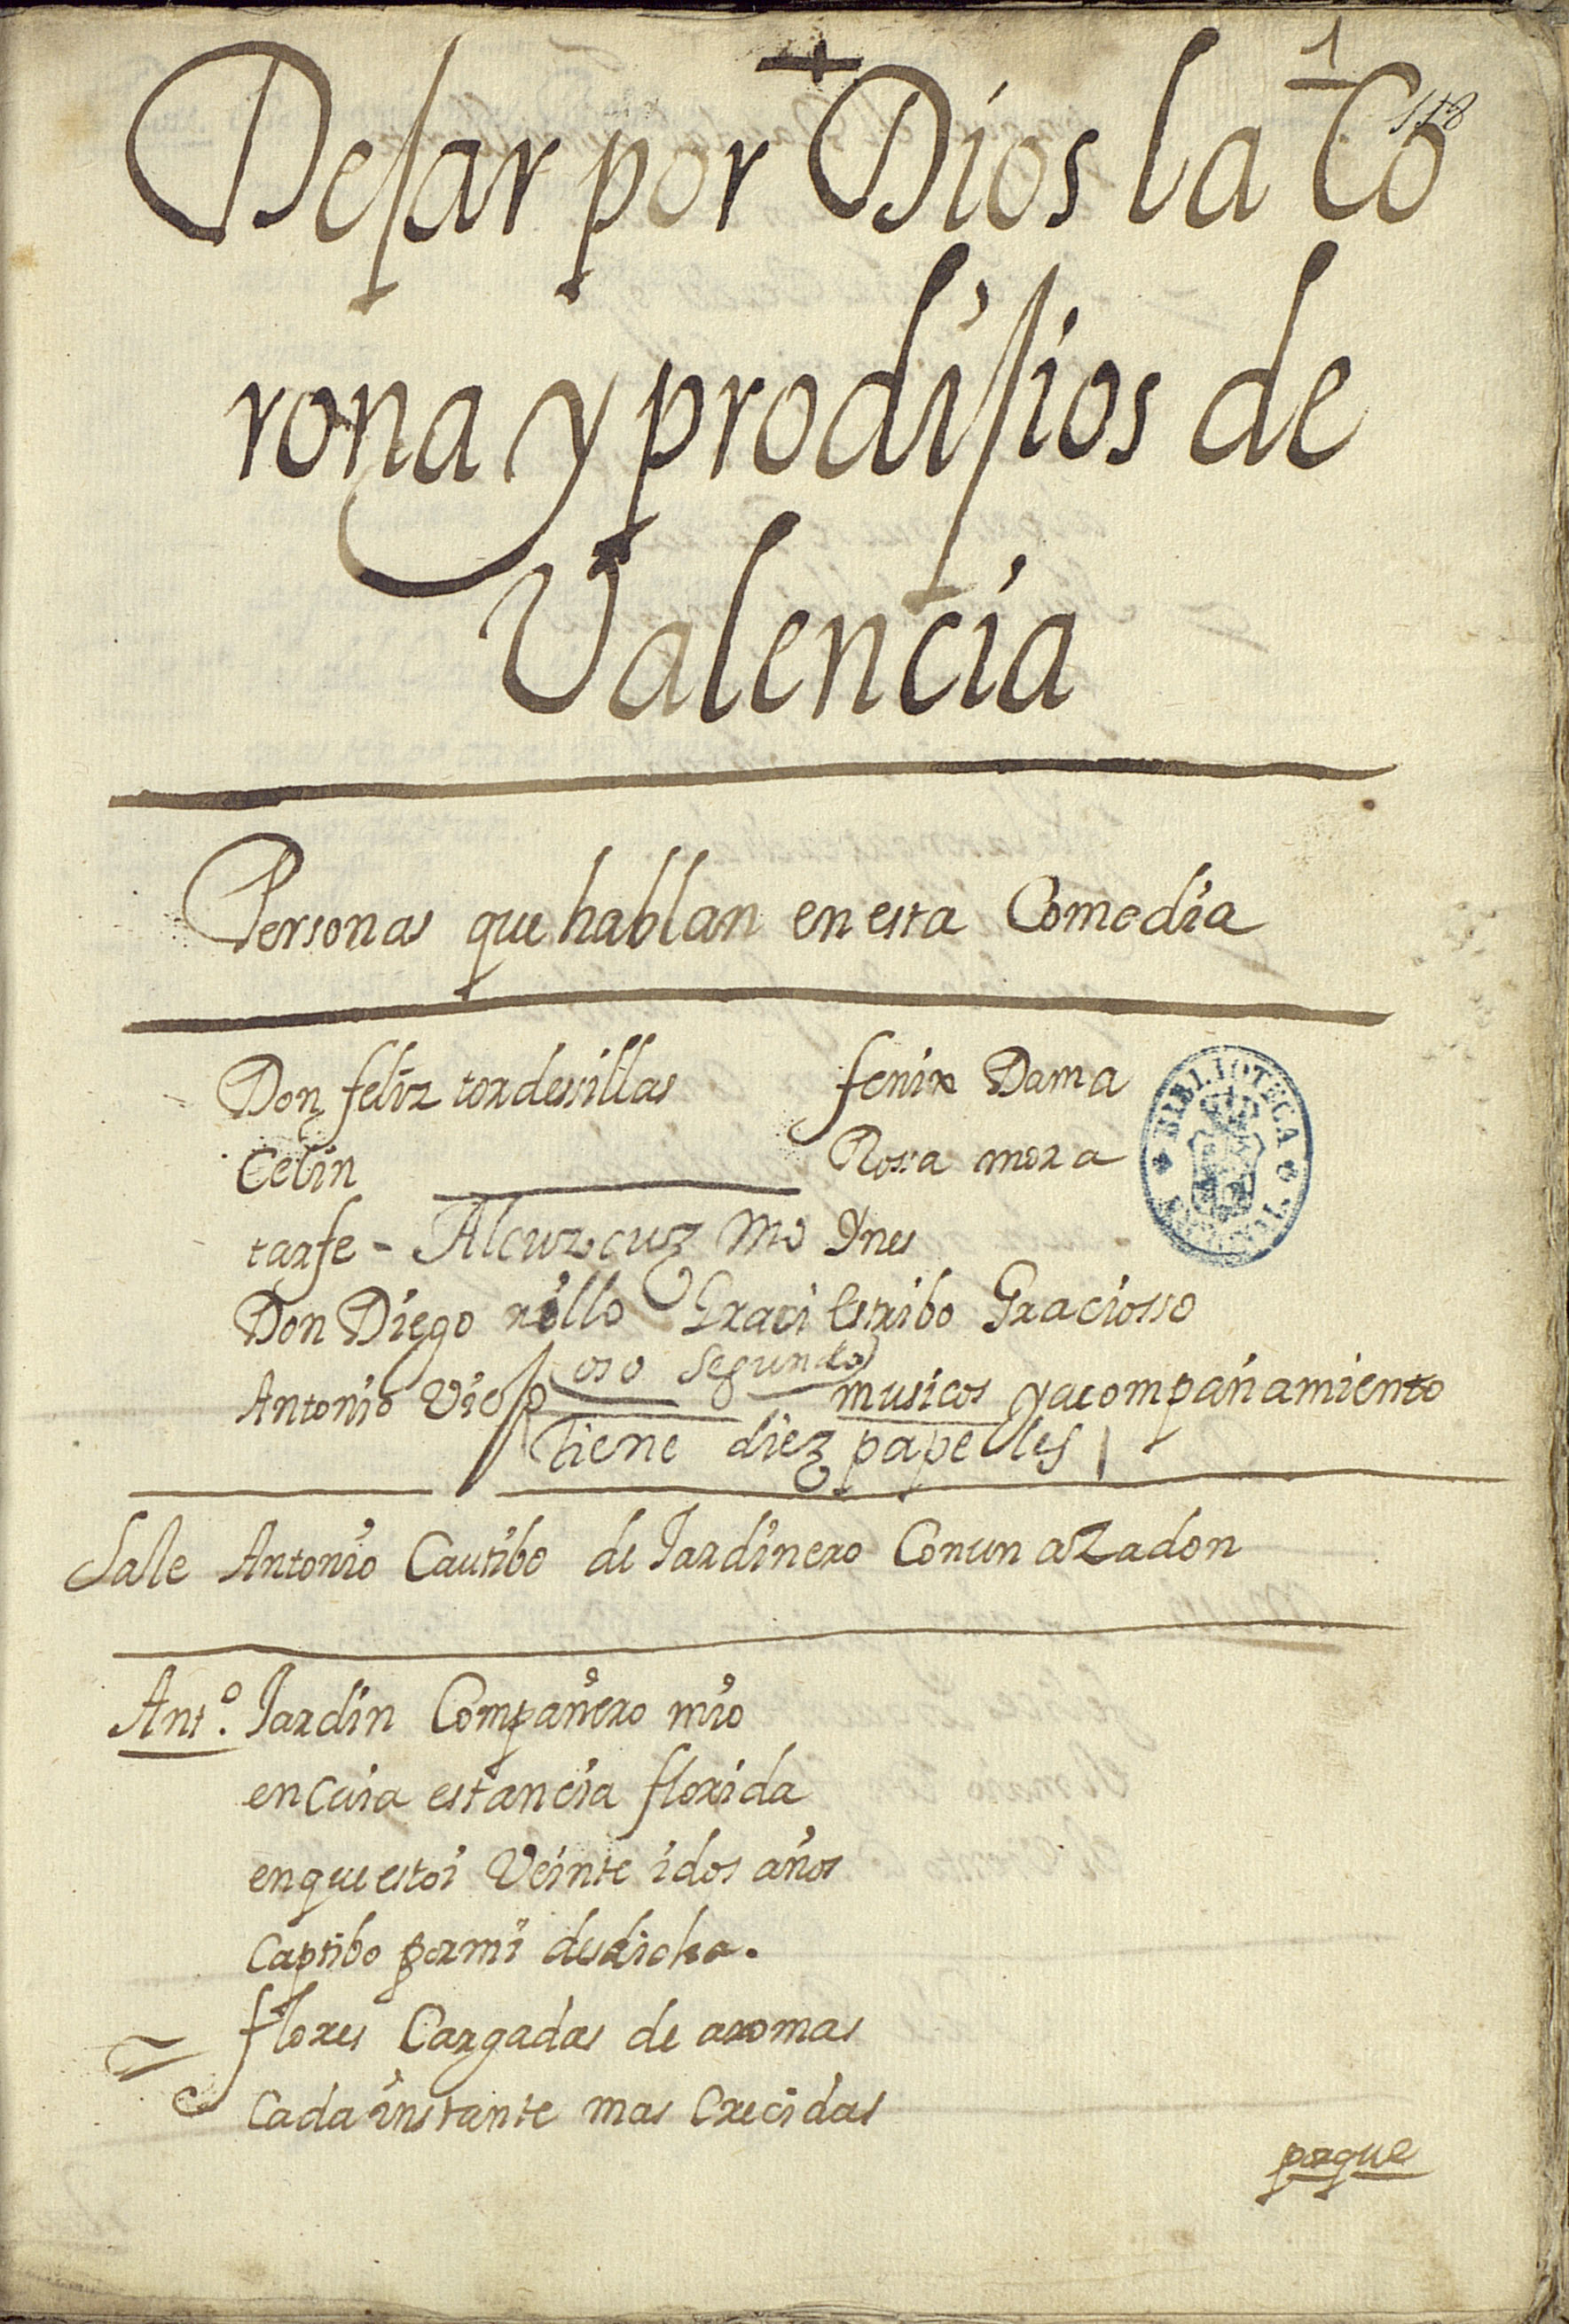 1
118
Dejar por Dios la Co
rona y prodijios de
Valencia
Personas que hablan en esta Comedia
Don feliz tordessillas fenix Dama
Celin Rosa mora
tarfe - Alcuzcuz mo Ynes
Don Diego rillo Graci Estribo Graciosso
Antonio Viejo oso segundo musicos y acompañamiento
tiene diez papeles
Sale Antonio Cautibo de Jardinero Con un azadon
Antº. Jardin Compañero mio
en Cuia estancia florida
en que estoi Veinte i dos años
Captibo por mi desdicha.
flores Cargadas de aromas
Cada instante mas Crecidas
porque
BIBLIOTECA